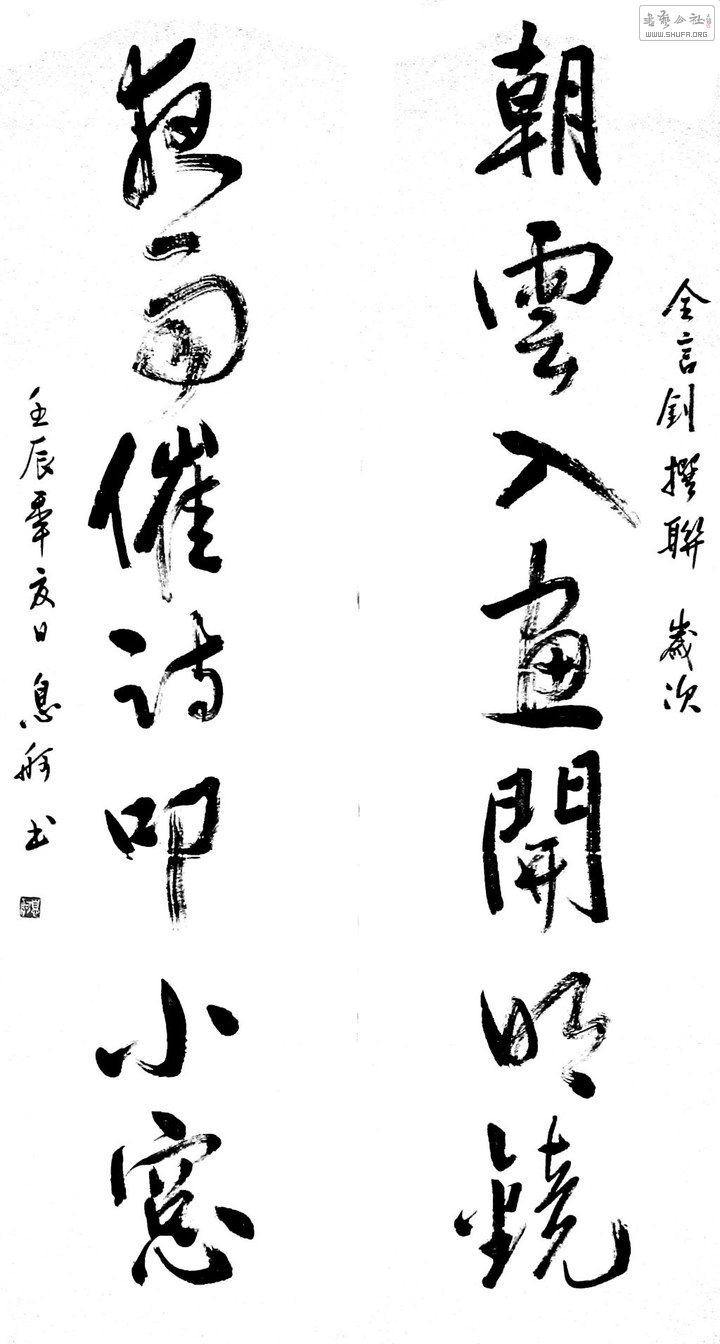 朝雲入畫開明鏡
夜雨催詩叩小窓
金言釗撰聯 歲次
壬辰辜亥日 息舲書
書藝公社
WWW.SHUFA.ORG